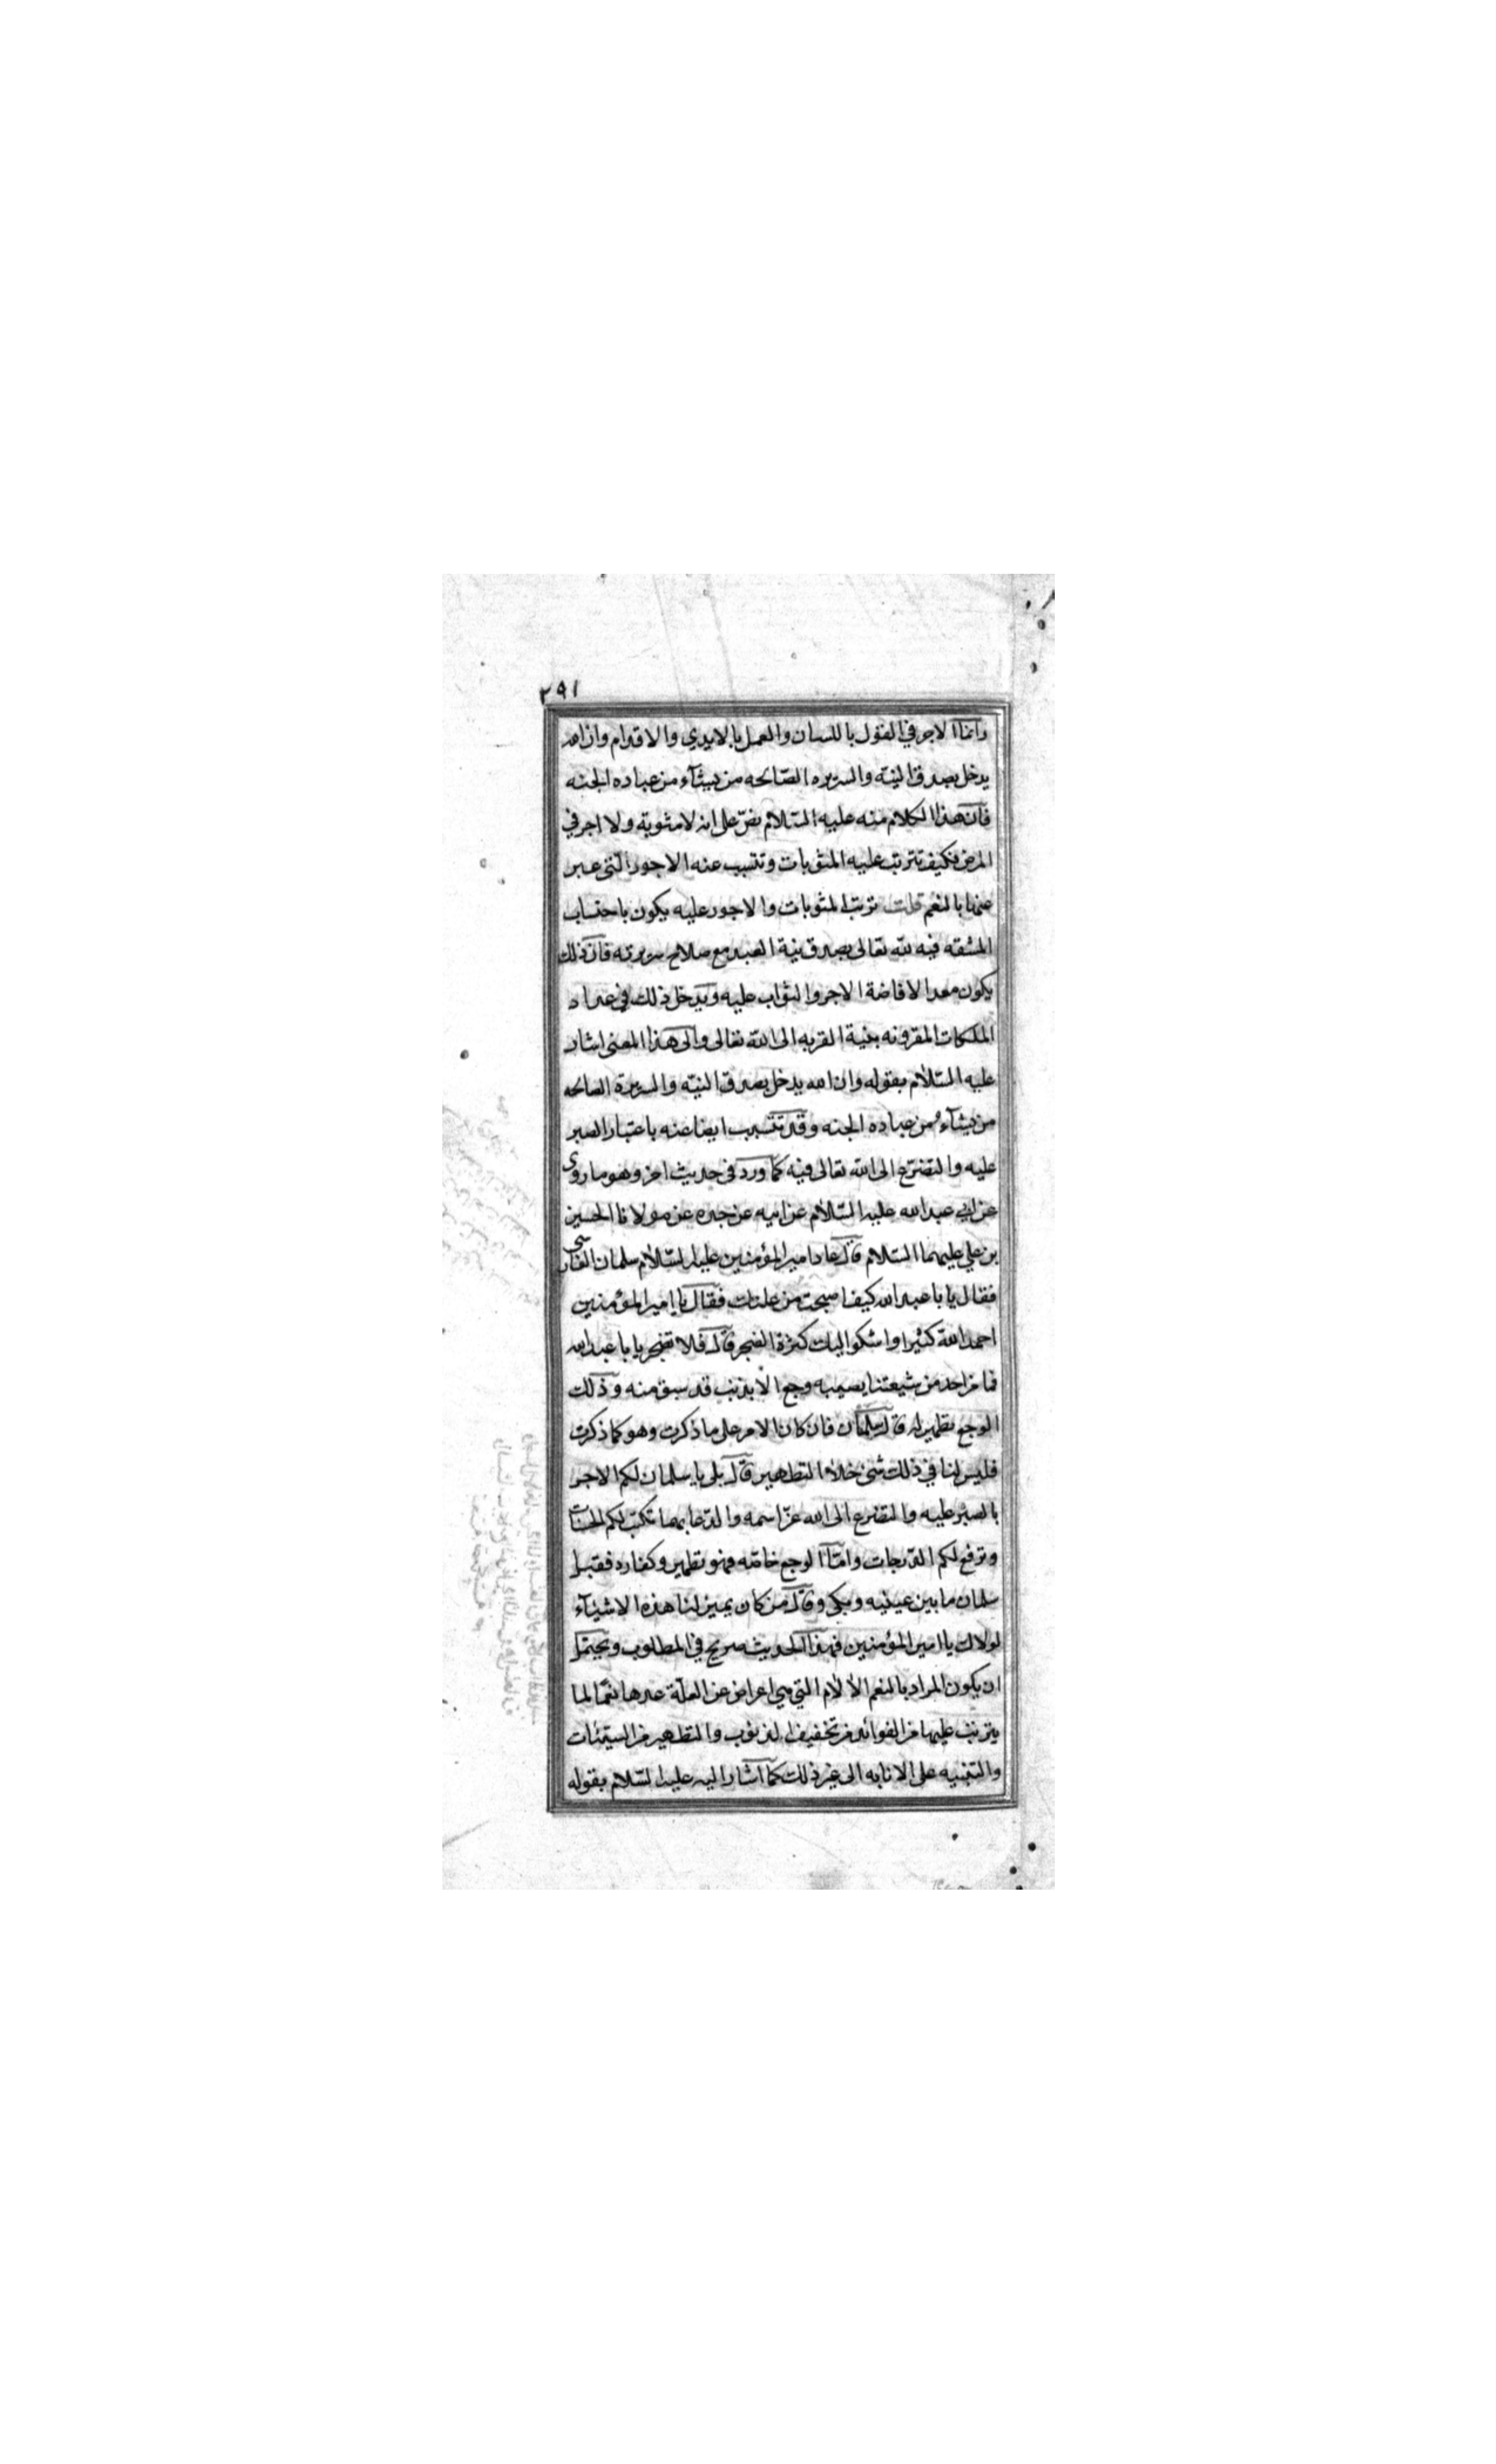 ٢٩١
وانما الاجر في القول باللسان والعمل بالايدي والاقدام وان الله
يدخل بصدق النيّة والسريره الصّالحه من يشآء من عباده الجنه
فان هذا الكلام منه عليه السّلام نصّ على انه لا مثوبة ولا اجر في
المرض فكيف تترتب عليه المثوبات وتتسبب عنه الاجور الّتي عبر
عنها بالنعم قلت ترتب المثوبات والاجور عليه يكون باحتساب
المشقه فيه للّه تعالى بصدق نية العبد مع صلاح سريرته فان ذلك
يكون معدا لافاضة الاجر والثواب عليه ويدخل ذلك في عداد
الملكات المقرونه بنية القربه الى اللّه تعالى والى هذا المعنى اشار
عليه السّلام بقوله وان الله يدخل بصدق النيّه والسريرة الصالحه
من يشآء من عباده الجنه وقد تتسبب ايضا عنه باعتبار الصبر
عليه والتضرّع الى اللّه تعالى فيه كما ورد في حديث اخر وهو ما روى
عن ابي عبد الله عليه السّلام عن ابيه عن جده عن مولانا الحسين
بن علي عليهما السّلام قال عاد امير المؤمنين عليه السّلام سلمان الفارسى
فقال يا با عبد الله كيف اصبحت من علتك فقال يا امير المؤمنين
احمد اللّه كثيرا واشكوا اليك كثرة الضجر قال فلا تضجر يا با عبد الله
فما من احد من شيعتنا يصيبه وجع الا بذنب قد سبق منه وذلك
الوجع تطهير له قال سلمان فان كان الامر على ما ذكرت وهو كما ذكرت
فليس لنا في ذلك شئ خلا التطهير قال بلى يا سلمان لكم الاجر
بالصبر عليه والتضرع الى الله عزّ اسمه والدّعا بهما تكتب لكم الحسنات
وترفع لكم الدّرجات وامّا الوجع خاصّه فهو تطهير وكفاره فقبل
سلمان ما بين عينيه وبكى وقال من كان يميز لنا هذه الاشيآء
لولاك يا امير المؤمنين فهذا الحديث صريح في المطلوب ويحتمل
ان يكون المراد بالنعم الالام التي هي اعراض عن العلّة عدها نعما لما
يترتب عليها من الفوائد من تخفيف الذنوب والتطهير من السيّئات
والتنبيه على الانابه الى غير ذلك كما اشار اليه عليه السّلام بقوله